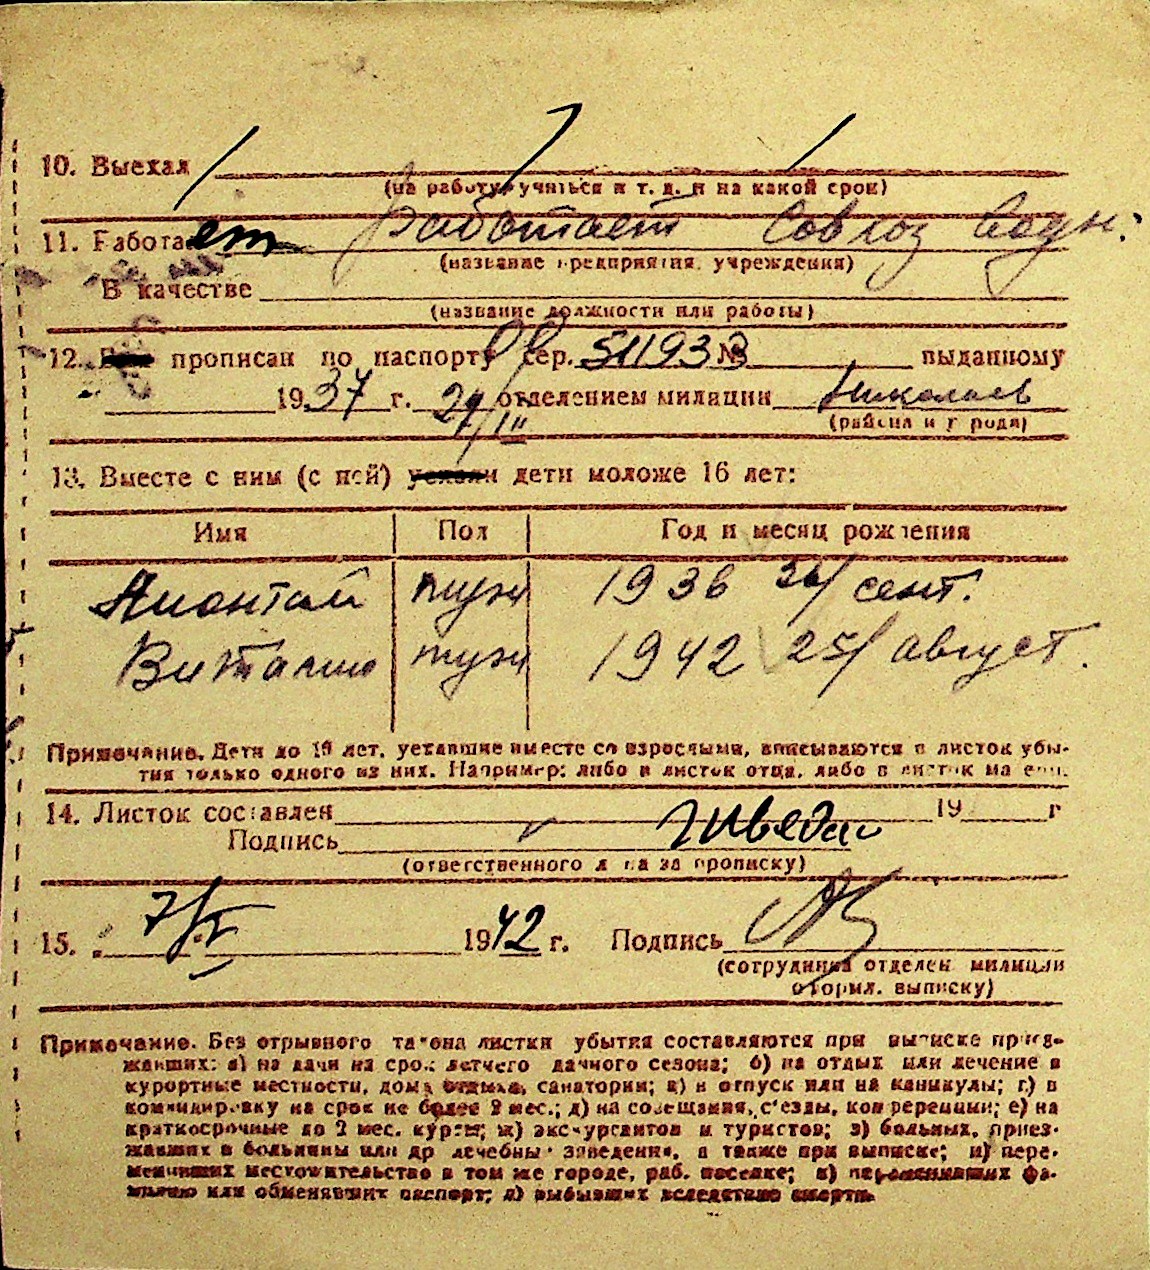 10. Выехал
(на работу, учиться и т. д. и на какой срок)
11. Работает работает Союз водн.
(название предприятия, учреждения)
В качестве
(название должности или работы)
12. прописан по паспорту сер. 511933 № выданному
1937 г. 29/III отделением милиции Николаев
(района и города)
13. Вместе с ним (с ней) дети моложе 16 лет:
Имя Пол Год и месяц рождения
муж 1936 сент.
Виталию муж 1942 25/ август.
Примечание. Дети до 16 лет, уехавшие вместе со взрослыми, вписываются в листок убы-
тия только одного из них. Например: либо в листок отца, либо в листок матери.
14. Листок составлен 19 г
Подпись
(ответственного лица за прописку)
15. 7/X 1942 г. Подпись
(сотрудника отделен. милиции
оформл. выписку)
Примечание. Без отрывного талона листки убытия составляются при выписке приез-
жавших: а) на дачи на срок летнего дачного сезона; б) на отдых или лечение в
курортные местности, дома отдыха, санатории; в) в отпуск или на каникулы; г) в
командировку на срок не более 2 мес.; д) на совещания, съезды, конференции; е) на
краткосрочные до 2 мес. курсы; ж) экскурсантов и туристов; з) больных, приез-
жавших в больницы или др лечебны заведения, а также при выписке; и) пере-
менивших местожительство в том же городе, раб. поселке; к) переменивших фа-
милию или обменявших паспорт; л) выбывших вследствие смерти.